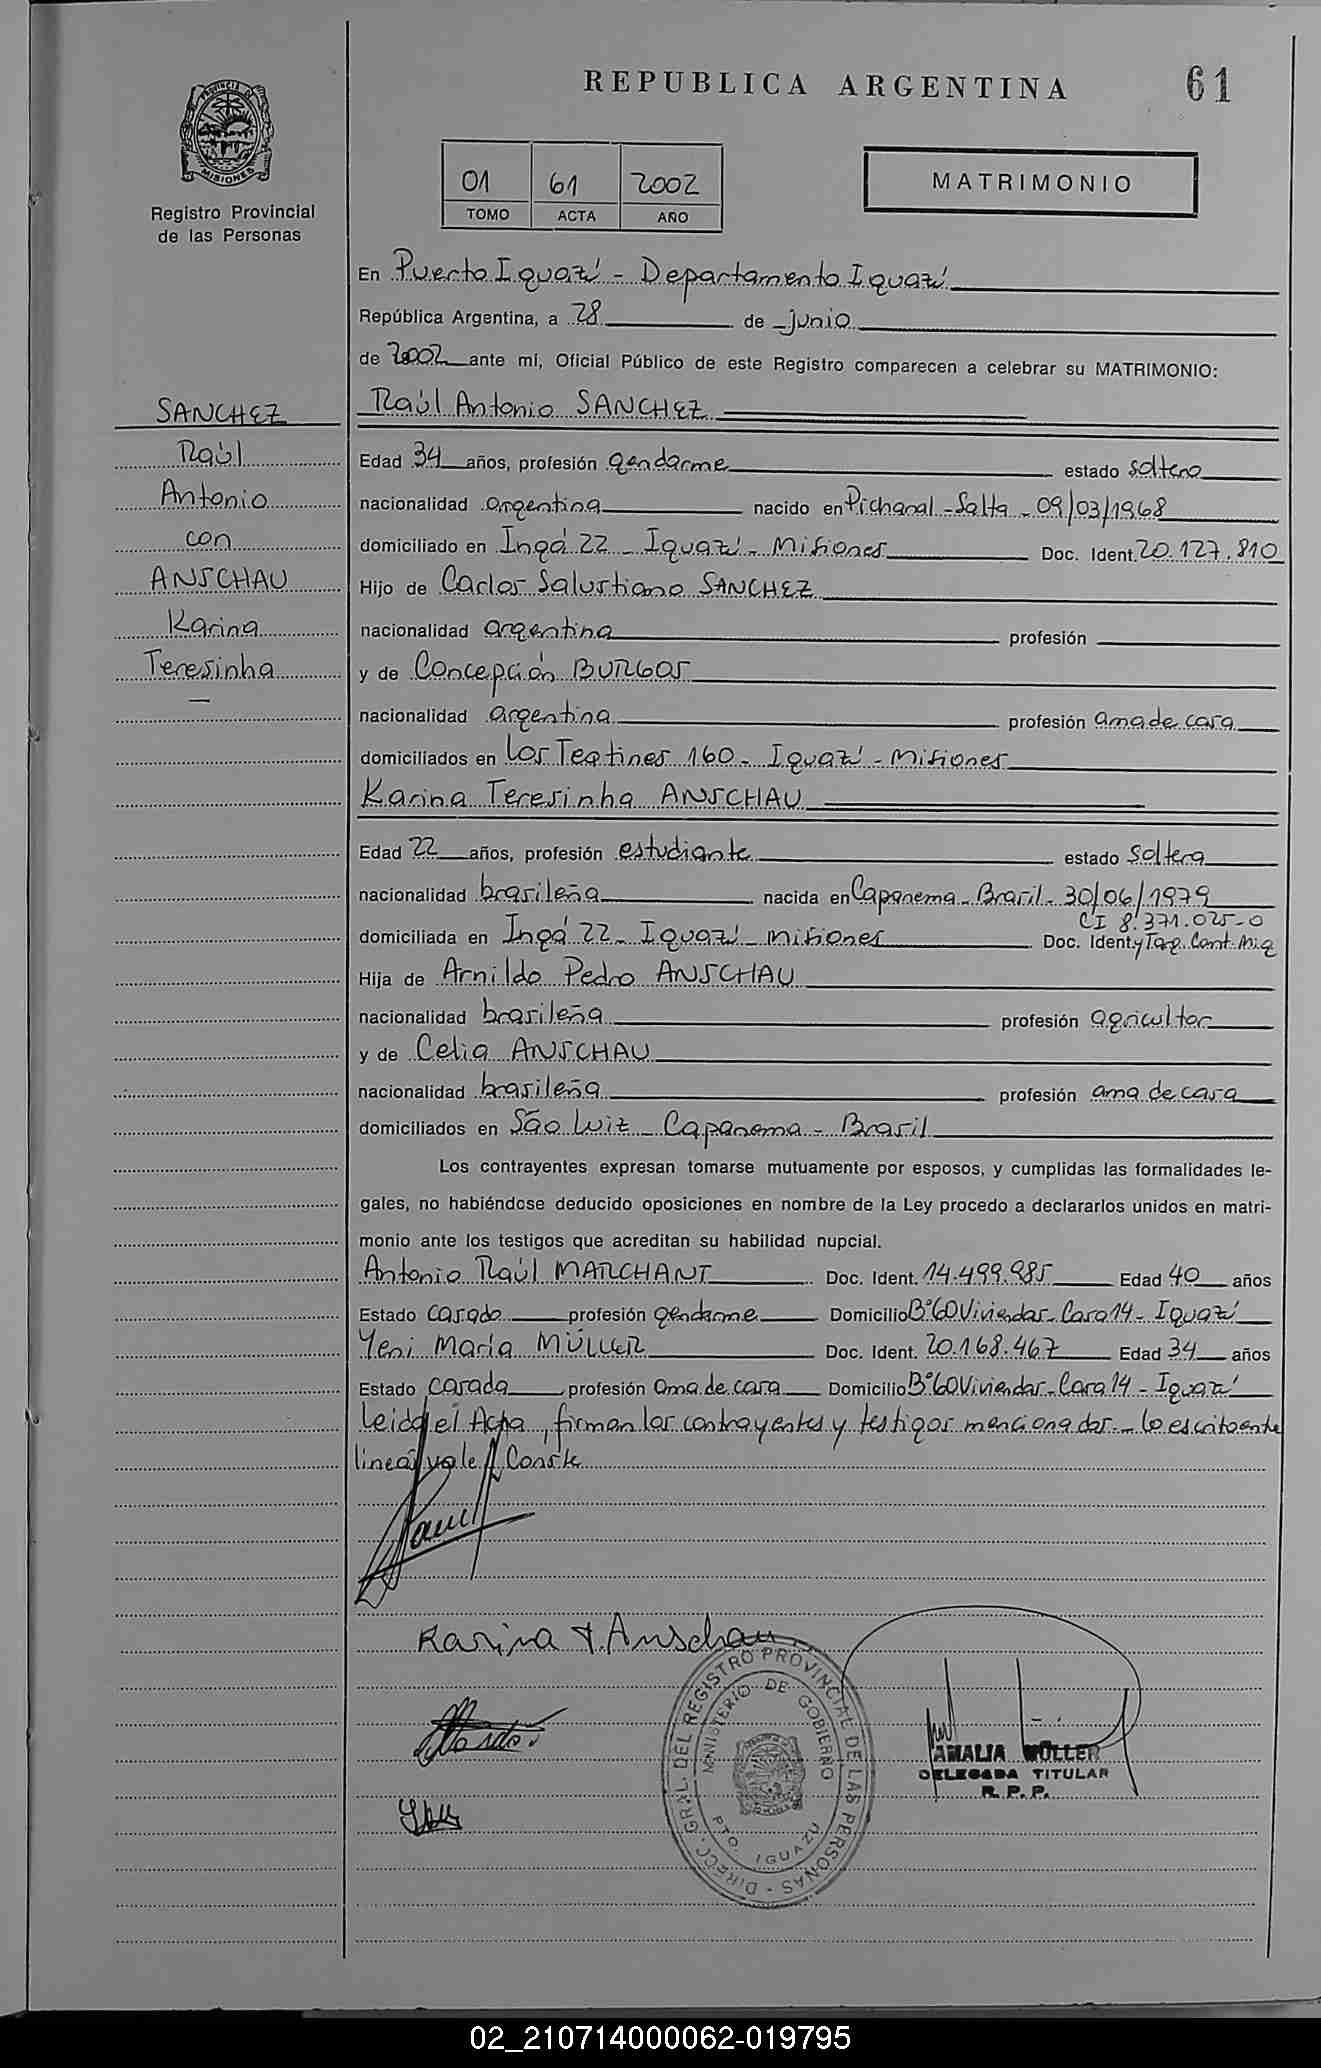 REPUBLICA ARGENTINA
61
PROVINCIA DE
MISIONES
Registro Provincial
de las Personas
01 61 2002
TOMO ACTA AÑO
MATRIMONIO
En Puerto Iguazú - Departamento Iguazú
República Argentina, a 28 de junio
de 2002 ante mí, Oficial Público de este Registro comparecen a celebrar su MATRIMONIO:
SANCHEZ
Raúl
Antonio
con
ANSCHAU
Karina
Teresinha
Raúl Antonio SANCHEZ
Edad 34 años, profesión gendarme estado soltero
nacionalidad argentina nacido en Pichanal - Salta - 09/03/1968
domiciliado en Ingá 22 - Iguazú - Misiones Doc. Ident. 20.127.810
Hijo de Carlos Salustiano SANCHEZ
nacionalidad argentina profesión
y de Concepción BURGOS
nacionalidad argentina profesión ama de casa
domiciliados en Los Teatines 160 - Iguazú - Misiones
Karina Teresinha ANSCHAU
Edad 22 años, profesión estudiante estado soltera
nacionalidad brasileña nacida en Capanema - Brasil - 30/06/1979
CI 8.371.025-0
domiciliada en Ingá 22 - Iguazú - Misiones Doc. Ident y Tarj. Cont. Mig
Hija de Arnildo Pedro ANSCHAU
nacionalidad brasileña profesión agricultor
y de Celia ANSCHAU
nacionalidad brasileña profesión ama de casa
domiciliados en São Luiz - Capanema - Brasil
Los contrayentes expresan tomarse mutuamente por esposos, y cumplidas las formalidades le-
gales, no habiéndose deducido oposiciones en nombre de la Ley procedo a declararlos unidos en matri-
monio ante los testigos que acreditan su habilidad nupcial.
Antonio Raúl MARCHANT Doc. Ident. 14.499.985 Edad 40 años
Estado casado profesión gendarme Domicilio Bº 60 Viviendas - Casa 14 - Iguazú
Yeni María MÜLLER Doc. Ident. 20.168.467 Edad 34 años
Estado casada profesión ama de casa Domicilio Bº 60 Viviendas - Casa 14 - Iguazú
Leída el Acta, firman los contrayentes y testigos mencionados - Lo escrito entre
líneas vale Conste
Karina T. Anschau
DIRECC. GRAL. DEL REGISTRO PROVINCIAL DE LAS PERSONAS -
MINISTERIO DE GOBIERNO
PTO. IGUAZU
AMALIA MÜLLER
DELEGADA TITULAR
R.P.P.
02_210714000062-019795